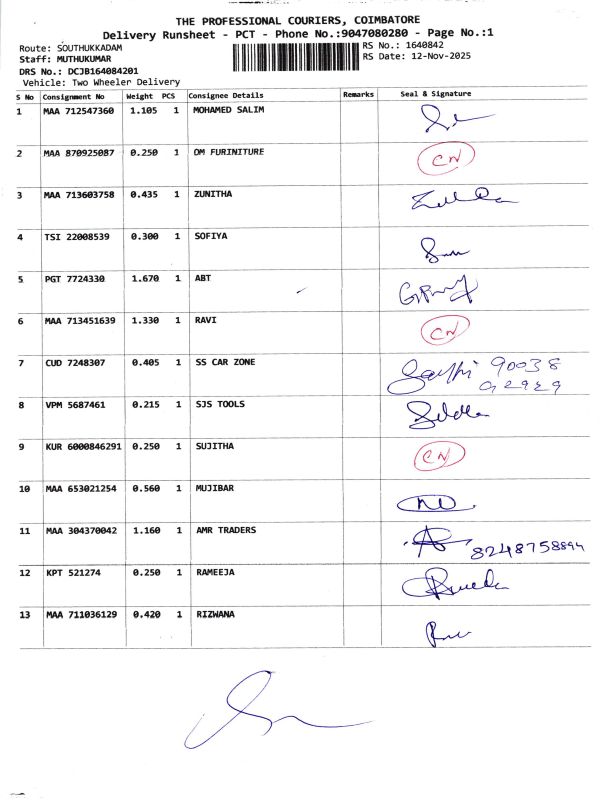 THE PROFESSIONAL COURIERS, COIMBATORE
Delivery Runsheet - PCT - Phone No.:9047080280 - Page No.:1
Route: SOUTHUKKADAM RS No.: 1640842
Staff: MUTHUKUMAR RS Date: 12-Nov-2025
DRS No.: DCJB164084201
Vehicle: Two Wheeler Delivery
S No Consignment No Weight PCS Consignee Details Remarks Seal & Signature
1 MAA 712547360 1.105 1 MOHAMED SALIM
2 MAA 870925087 0.250 1 OM FURINITURE CN
3 MAA 713603758 0.435 1 ZUNITHA
4 TSI 22008539 0.300 1 SOFIYA
5 PGT 7724330 1.670 1 ABT
6 MAA 713451639 1.330 1 RAVI CN
7 CUD 7248307 0.405 1 SS CAR ZONE 90038
92929
8 VPM 5687461 0.215 1 SJS TOOLS
9 KUR 6000846291 0.250 1 SUJITHA CN
10 MAA 653021254 0.560 1 MUJIBAR
11 MAA 304370042 1.160 1 AMR TRADERS 8248758894
12 KPT 521274 0.250 1 RAMEEJA
13 MAA 711036129 0.420 1 RIZWANA